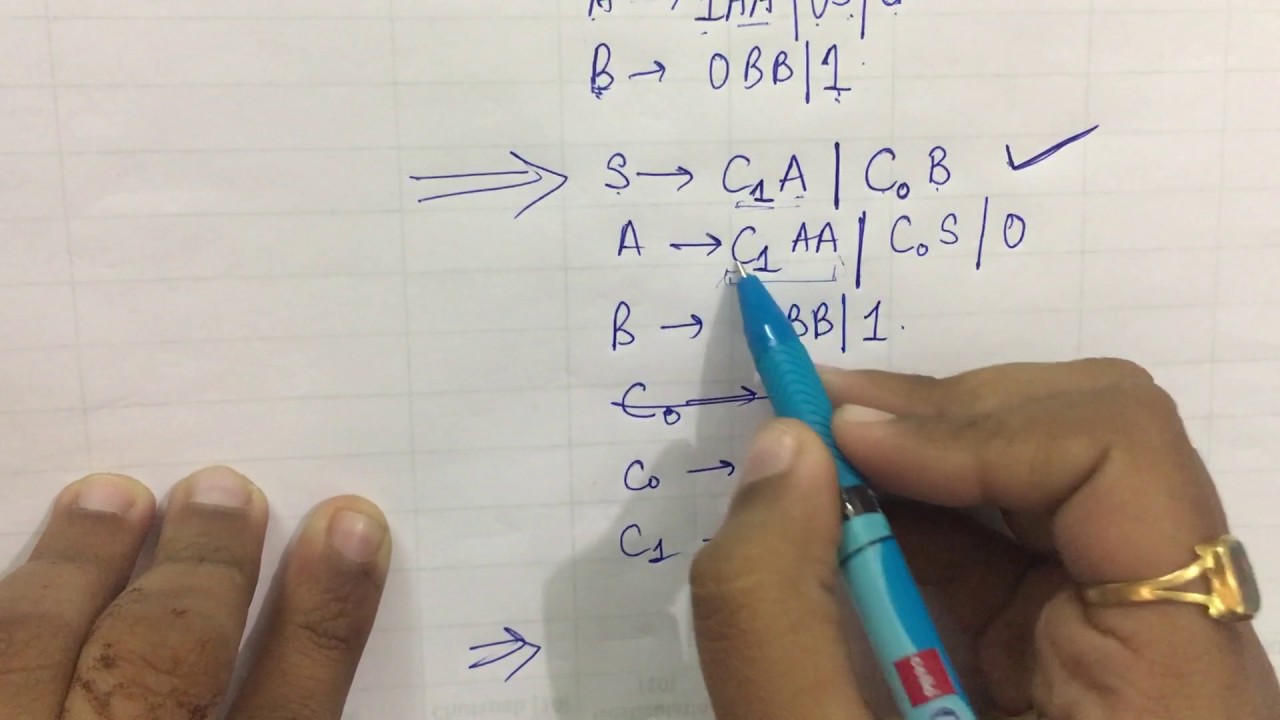 B → 0BB|1
S → C₁A | C₀B ✓
A → C₁AA | C₀S | 0
B → BB|1.
C₀ →
C₀ →
C₁